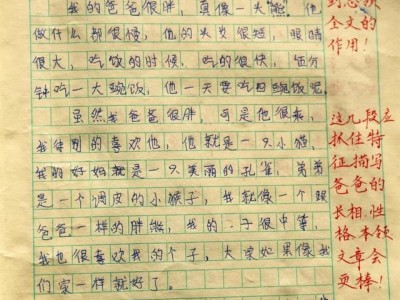 我的爸爸很胖,真像一头熊。他
做什么都很慢,他的头发很短,眼睛
很大,吃饭的时候,吃的很快,五分
钟吃一大碗饭,他一天要吃四碗饭呢。
虽然我爸爸很胖,可是他很
我特别的喜欢他,他就是一只小猫,
我的妈妈就是一只美丽的孔雀,弟弟
是一个调皮的小猴子,我就像一个跟
爸爸一样的胖熊,我的个子很中等,
我也很喜欢我的个子,大家如果像我
们家一样就好了。
全文的
作用!
这几段应
抓住特
征描写
爸爸的
长相,性
格,本领
文章会
更棒!